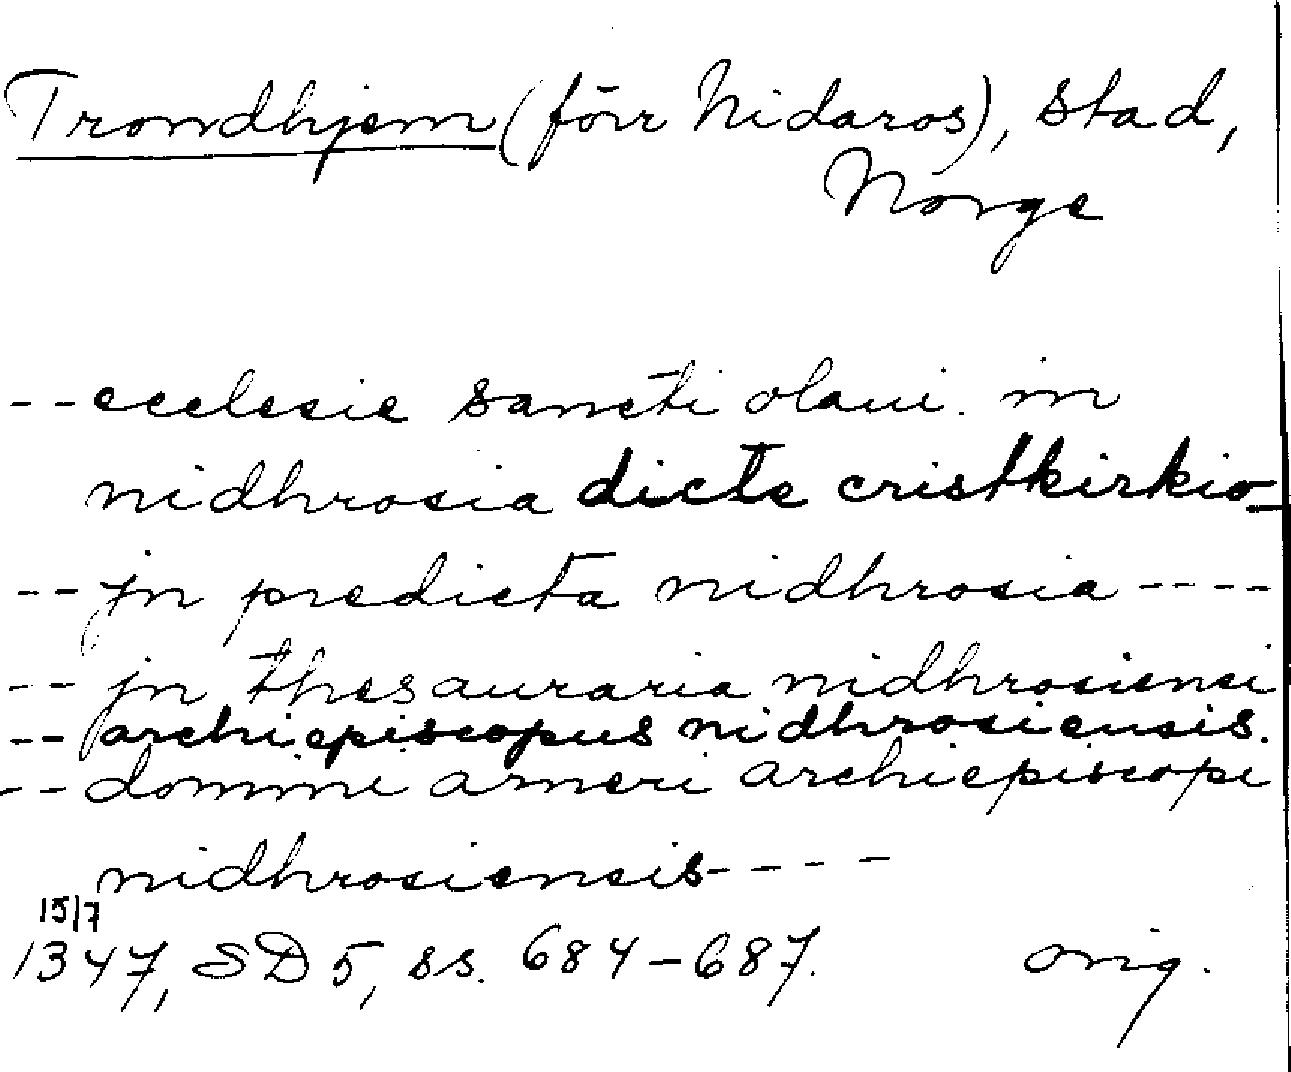 Trondhjem (förr Nidaros), stad,
Norge
-- ecclesie sancti olaui. in
nidhrosia dicte cristkirkio
-- jn predicta nidhrosia ----
-- jn thesauraria nidhrosiensi
-- archiepiscopus nidhrosiensis.
-- domini arneri archiepiscopi
nidhrosiensis ----
15/7
1347, SD 5, ss. 684-687. orig.